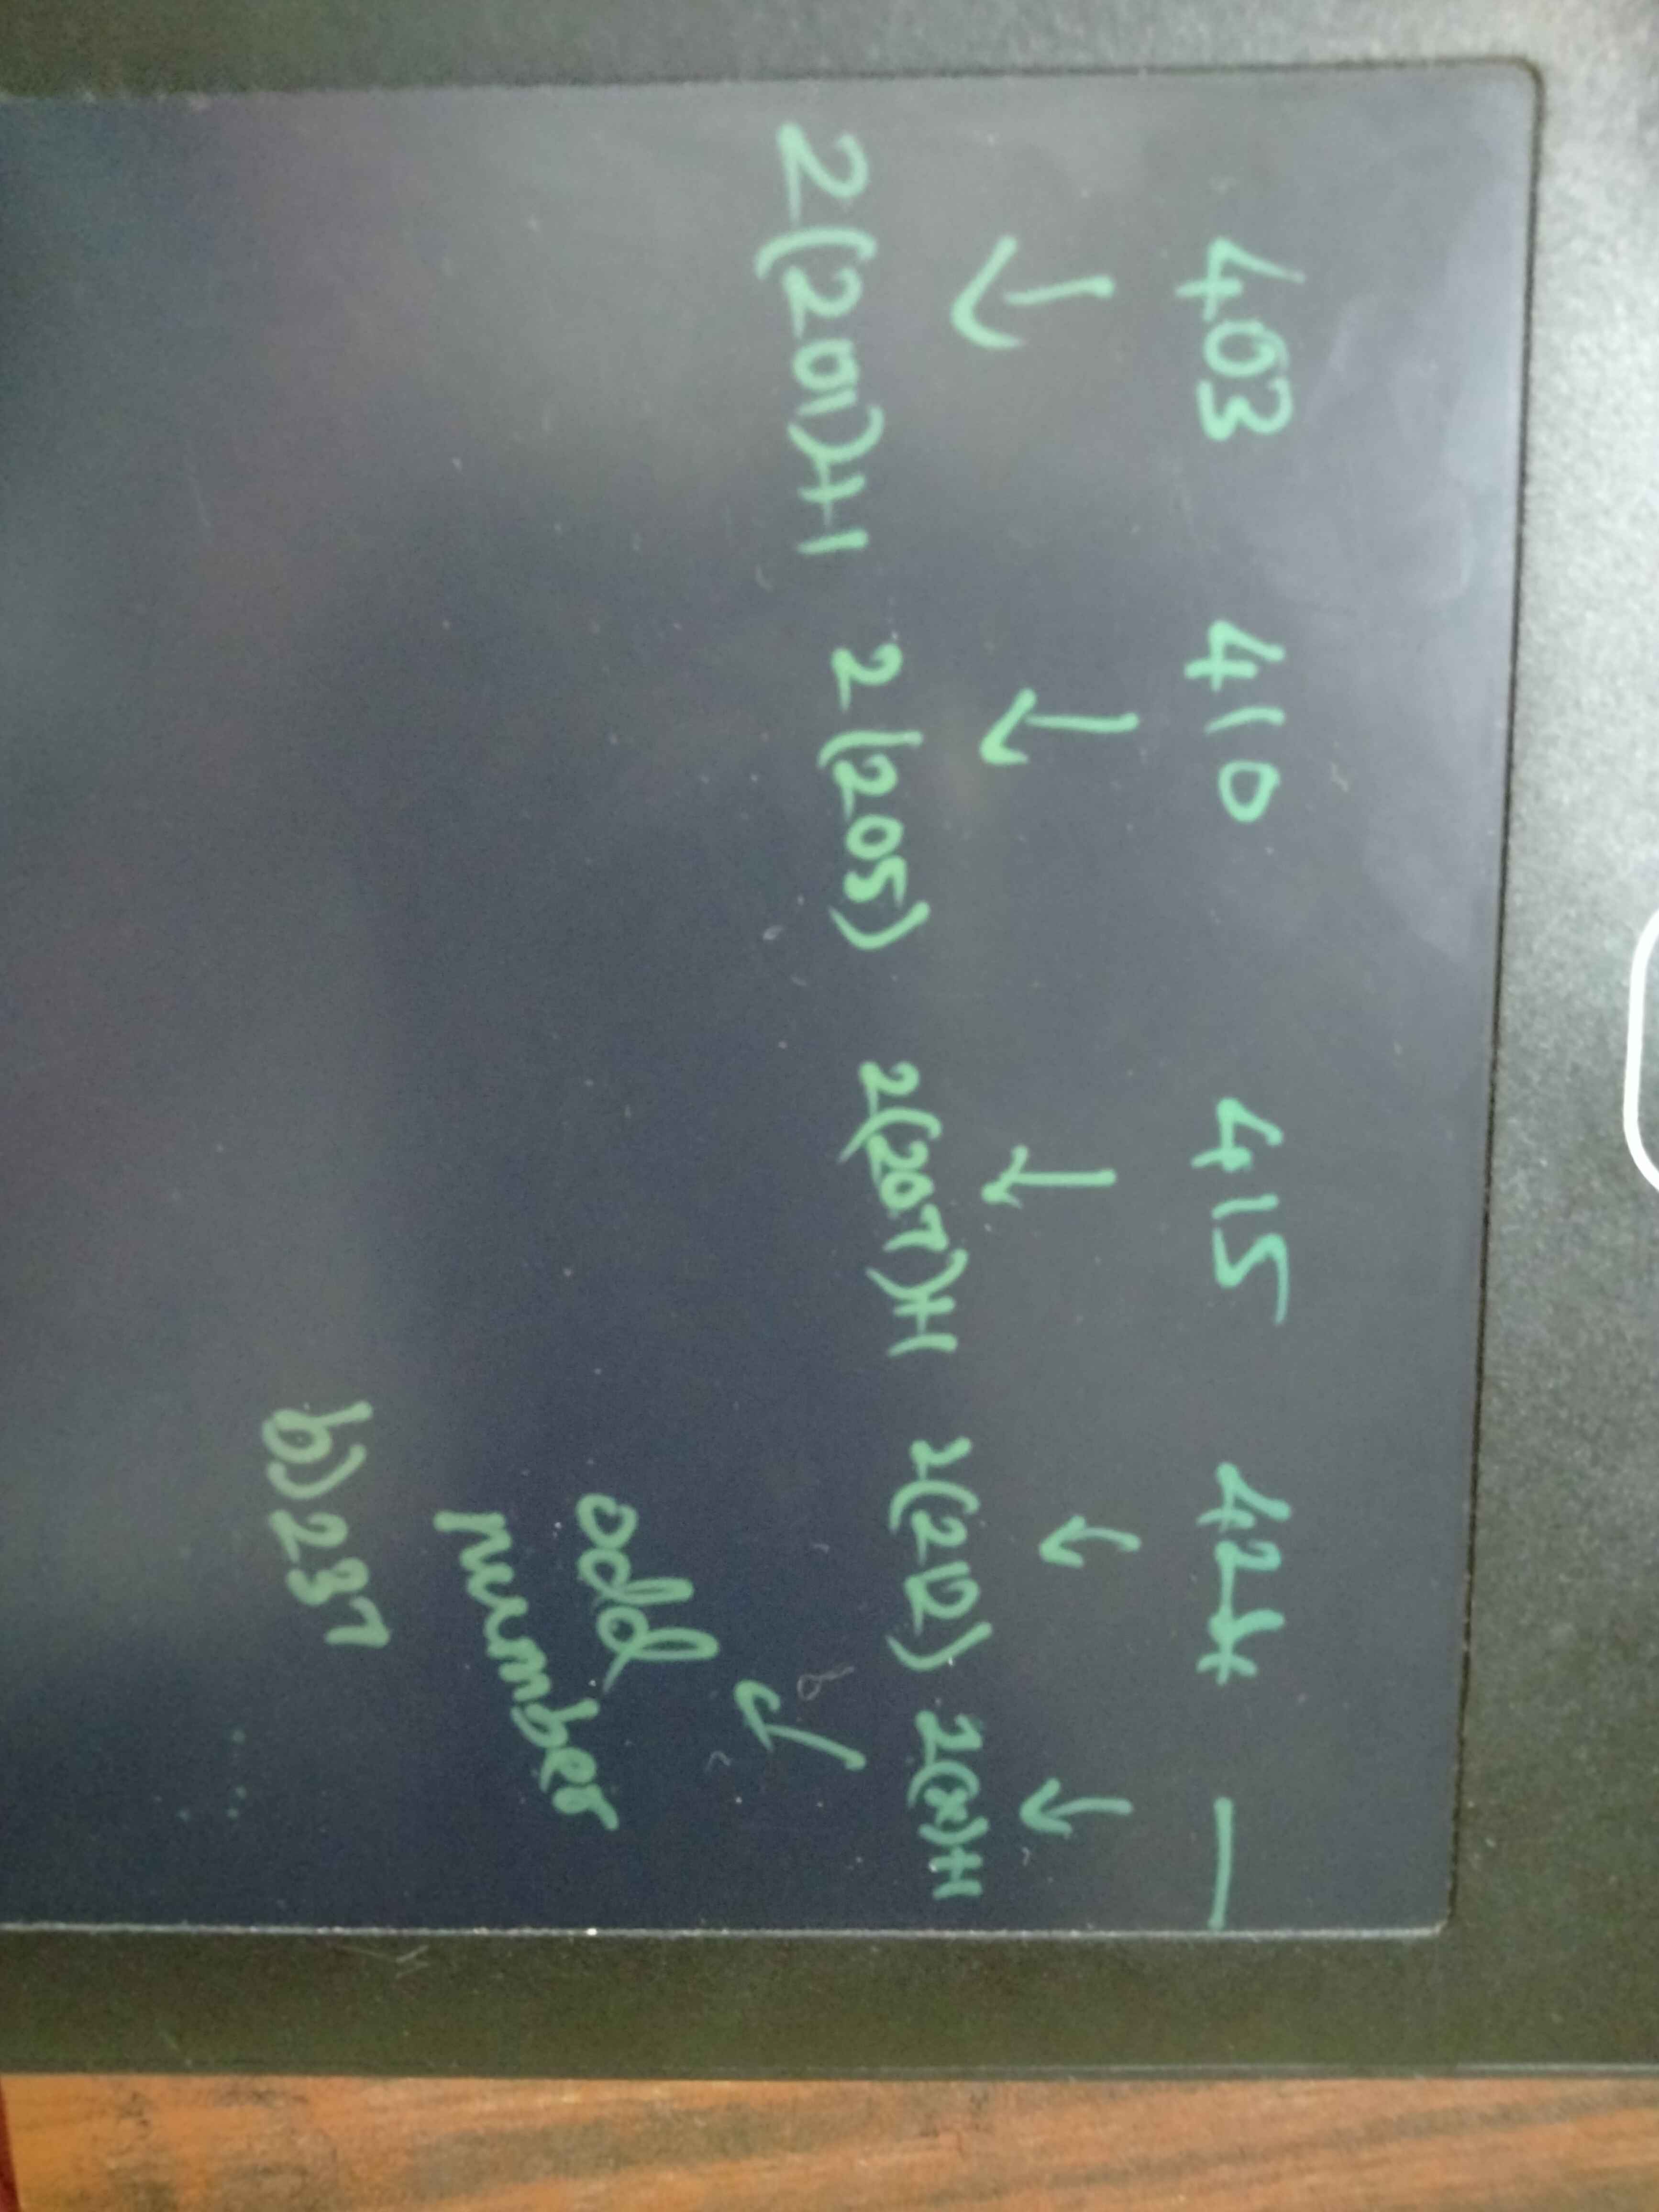 403 410 415 424 —
↓ ↓ ↓ ↓ ↓
2(201)+1 2(205) 2(207)+1 2(212) 2(x)+1
↓
odd
number
b) 237